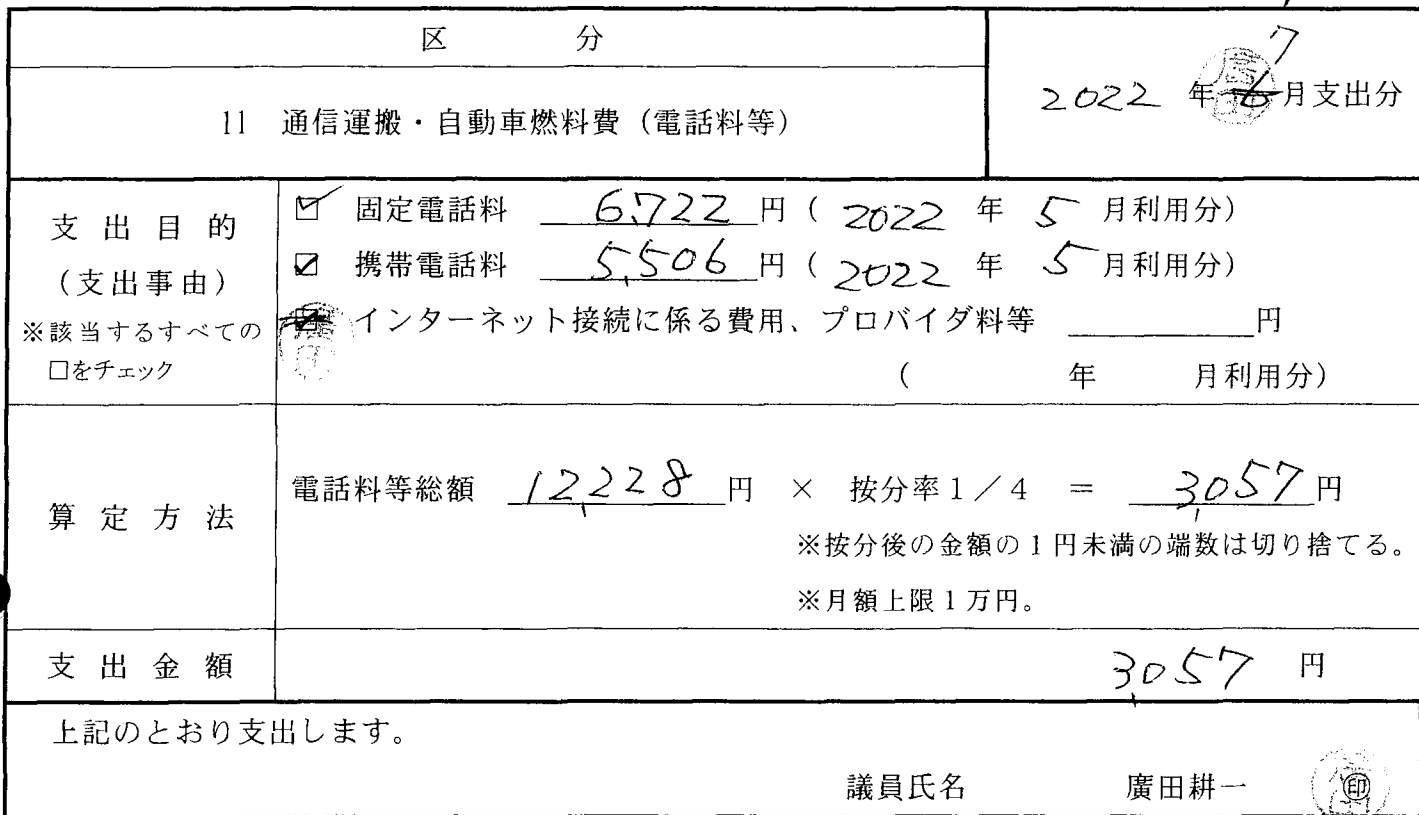 区 分
11 通信運搬・自動車燃料費(電話料等)
7
2022 年 6月支出分
支出目的
(支出事由)
※該当するすべての
□をチェック
☑ 固定電話料 6,722 円( 2022 年 5 月利用分)
☑ 携帯電話料 5,506 円( 2022 年 5 月利用分)
☑ インターネット接続に係る費用、プロバイダ料等 円
( 年 月利用分)
算定方法
電話料等総額 12,228 円 × 按分率1/4 = 3,057円
※按分後の金額の1円未満の端数は切り捨てる。
※月額上限1万円。
支出金額
3,057 円
上記のとおり支出します。
議員氏名 廣田耕一 ㊞